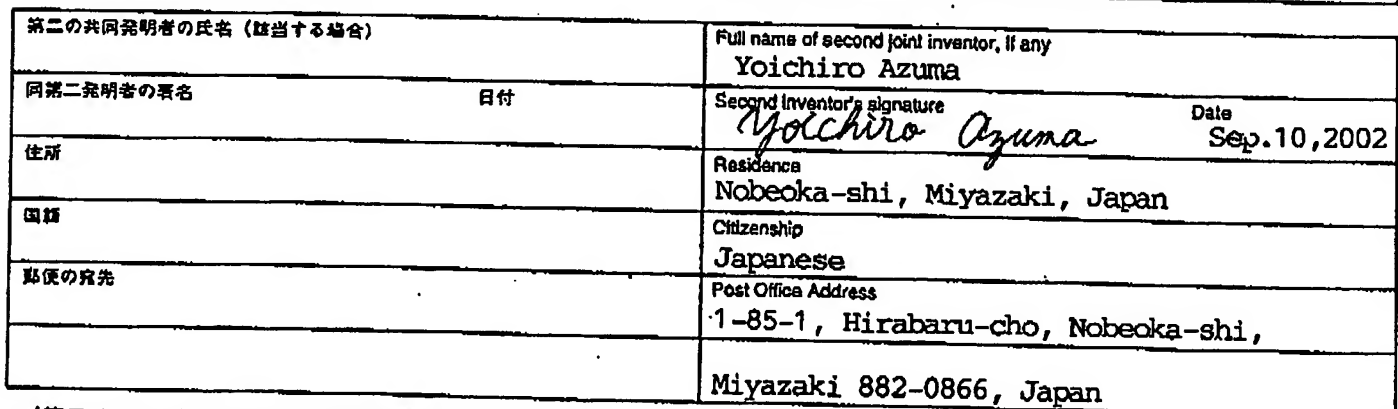 第二の共同発明者の氏名（該当する場合）
Full name of second joint inventor, if any
Yoichiro Azuma
同第二発明者の署名 日付
Second inventor's signature Date
Yoichiro Azuma Sep.10,2002
住所
Residence
Nobeoka-shi, Miyazaki, Japan
国籍
Citizenship
Japanese
郵便の宛先
Post Office Address
1-85-1, Hirabaru-cho, Nobeoka-shi,
Miyazaki 882-0866, Japan